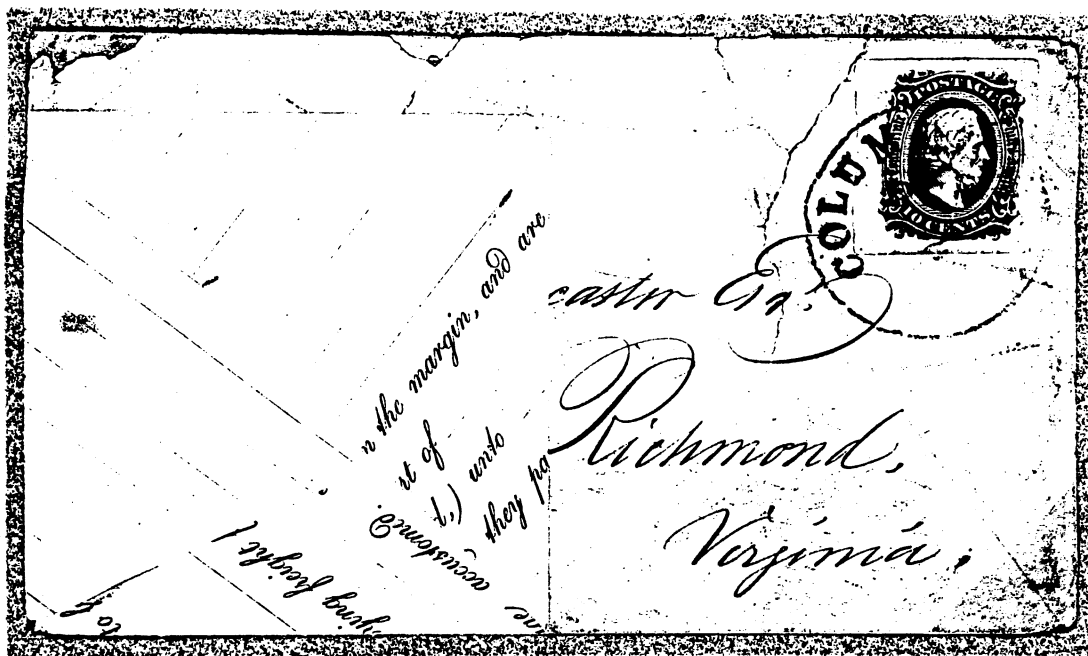 POSTAGE
10 CENTS
COLUM
caster Esqr.
Richmond,
Virginia.
n the margin, and are
rt of
") unto
they pa
accustomed.
me
ying freight f
to b